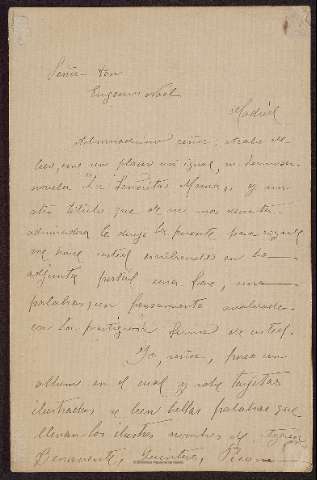 Señor don
Eugenio Noel
Madrid
Admiradísimo señor: Acabo de
leer, con un placer sin igual, su hermosa
novela "La Señorita Mema", y sin
otro título que de mas devota
admiradora le dirijo la presente para rogarle
me haga usted escribiendo en la
adjunta postal una frase, una
palabra, un pensamiento avalorado
con la prestigiosa firma de usted.
Yo, señor, poseo un
album en el cual y sobre tarjetas
ilustradas se leen bellas palabras que
llevan los ilustres nombres de
Benavente, Quintero, Picon